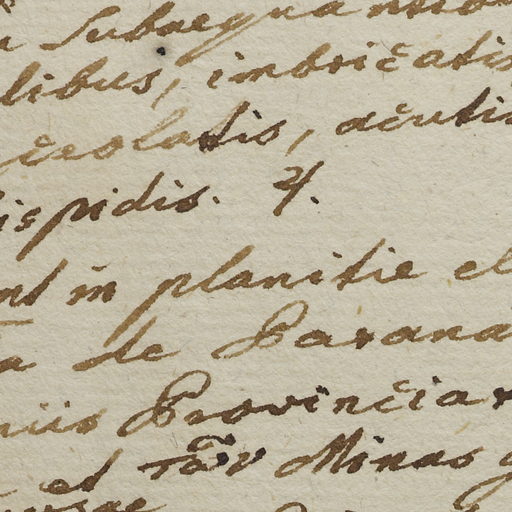 subaequa
libus, imbricatis
ceolatis, acutis
ispidis. ♃.
nt in planitie el
a de Parana
niis Provinciar
et Minas g